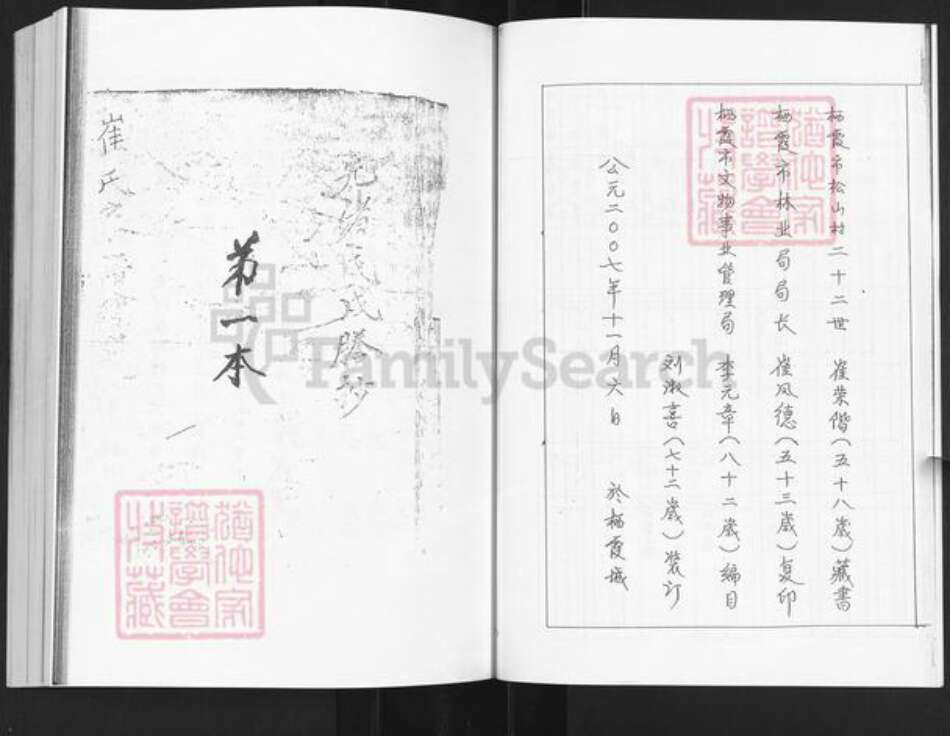 栖霞市松山村二十二世 崔荣偕(五十八歲)藏書
栖霞市林业局局长 崔凤德(五十三歲)复印
栖霞市文物事业管理局 李元章(八十二歲)编目
刘淑喜(七十二歲)装订
公元二〇〇七年十一月六日 於栖霞城
猶他家
譜學會
特藏
氏謄抄
第一本
崔氏
猶他家
譜學會
特藏
FamilySearch